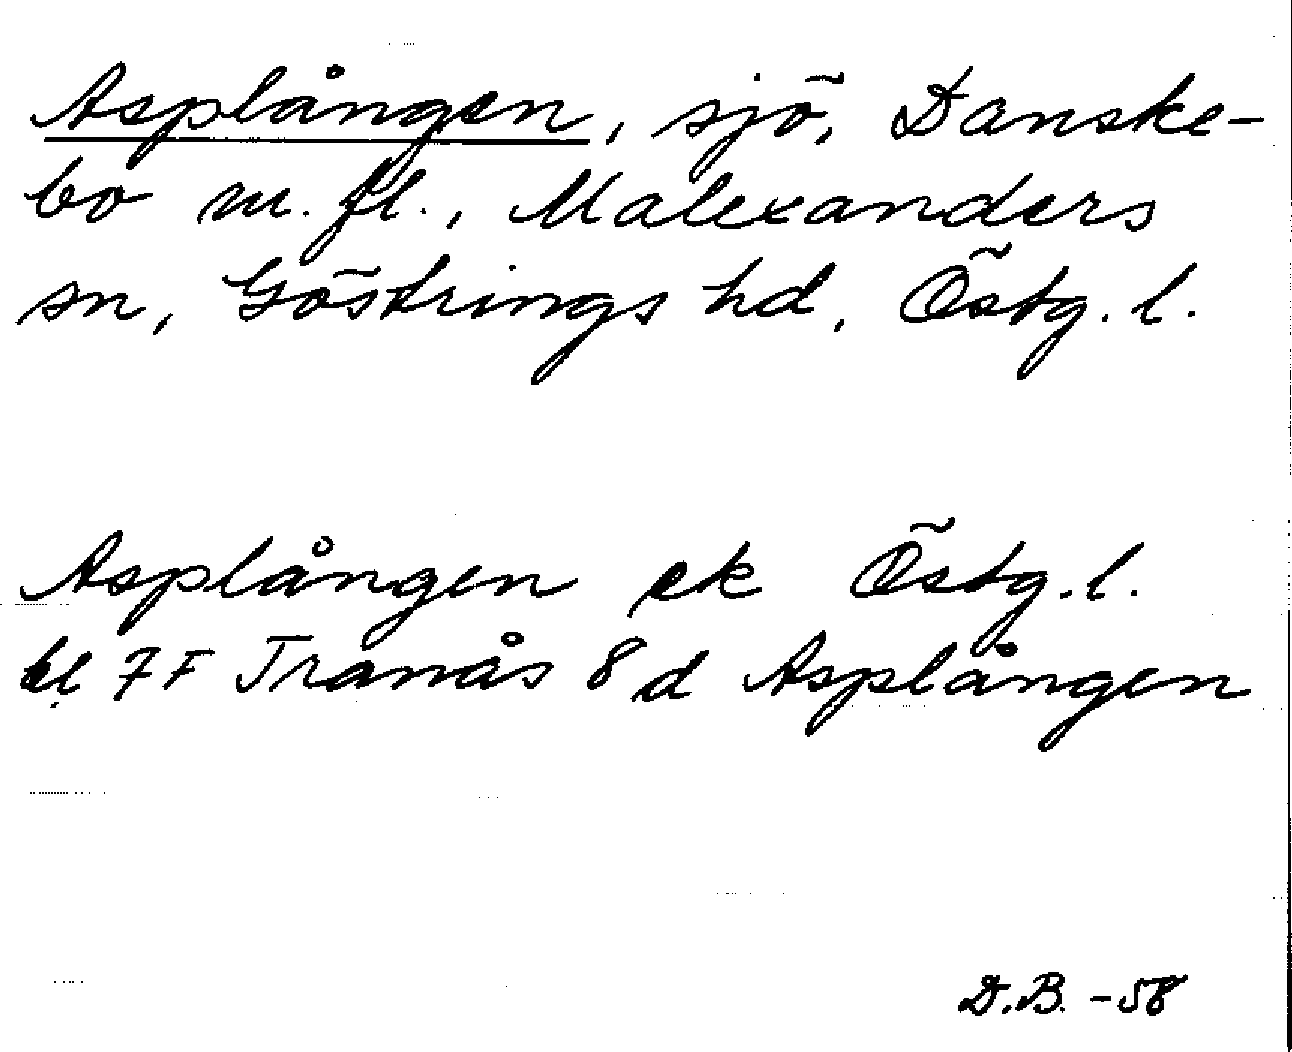 Asplången, sjö, Danske-
bo m. fl., Malexanders
sn, Göstrings hd, Östg. l.
Asplången ek Östg. l.
bl 7F Tranås 8 d Asplången
D.B. -58